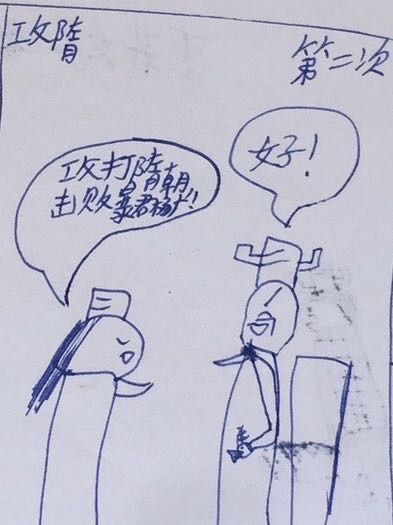 攻隋
第二次
攻打隋朝
击败暴君杨广!
好!